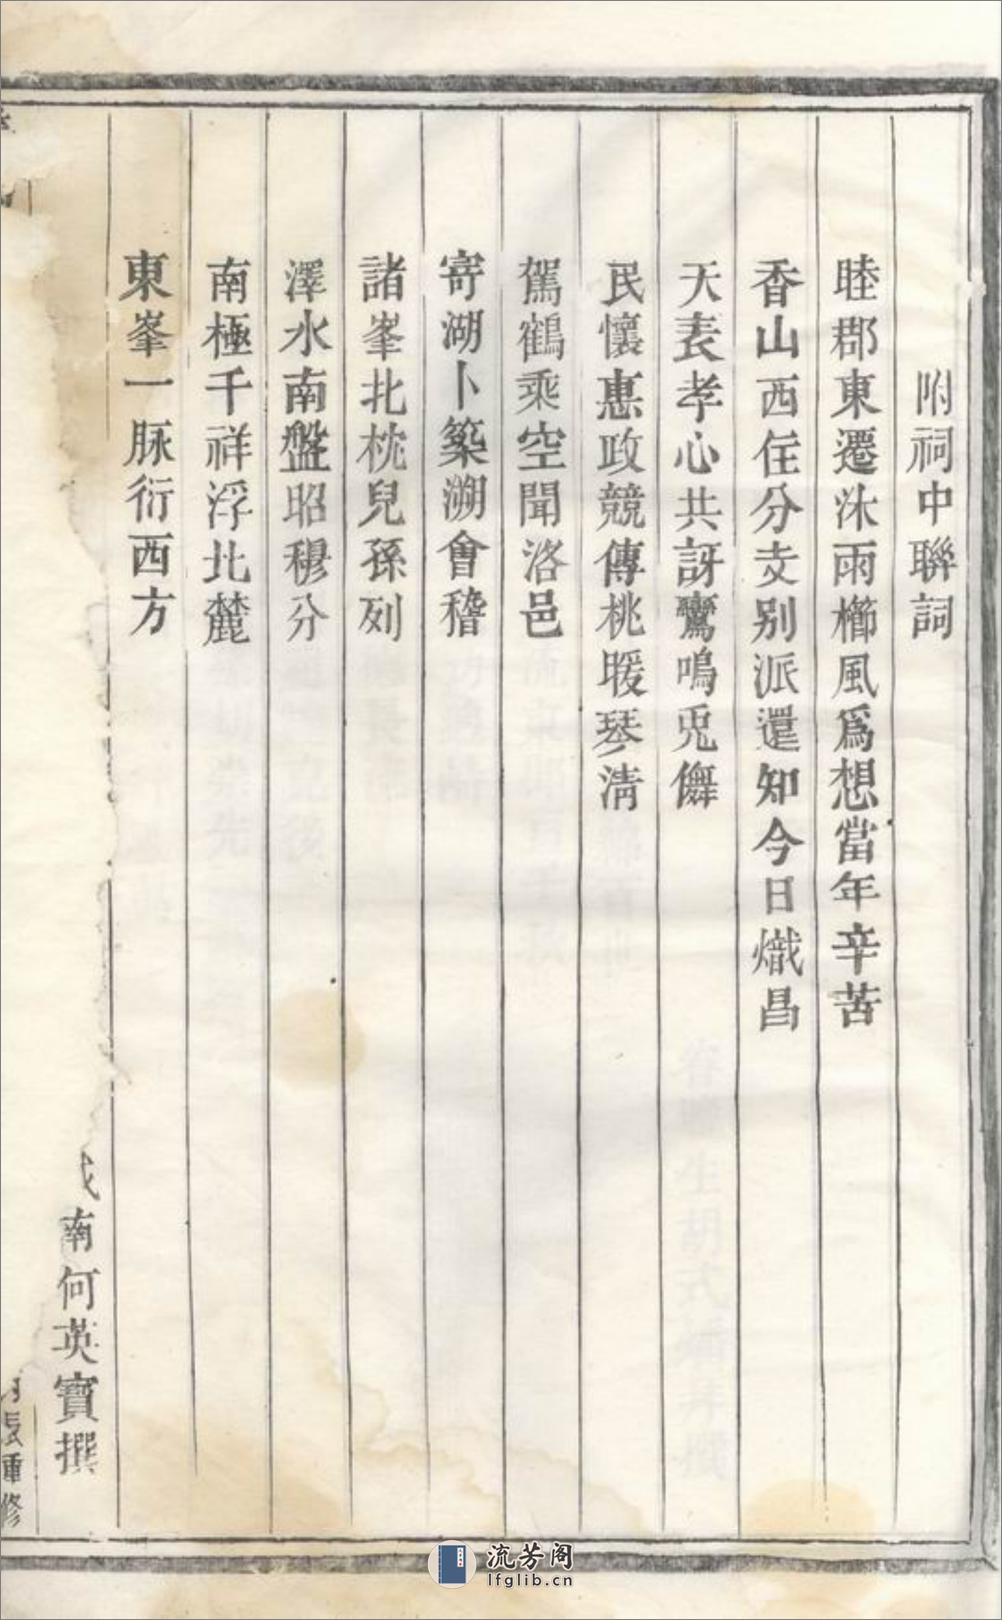 附祠中聯詞
睦郡東遷沐雨櫛風爲想當年辛苦
香山西住分支别派還知今日熾昌
天表孝心共訝鸞鳴兎儛
民懷惠政競傳桃暖琴淸
駕鶴乘空聞洛邑
寄湖卜築溯會稽
諸峯北枕兒孫列
澤水南盤昭穆分
南極千祥浮北麓
東峯一脉衍西方
南何英寶撰
重修
流芳阁
lfglib.cn